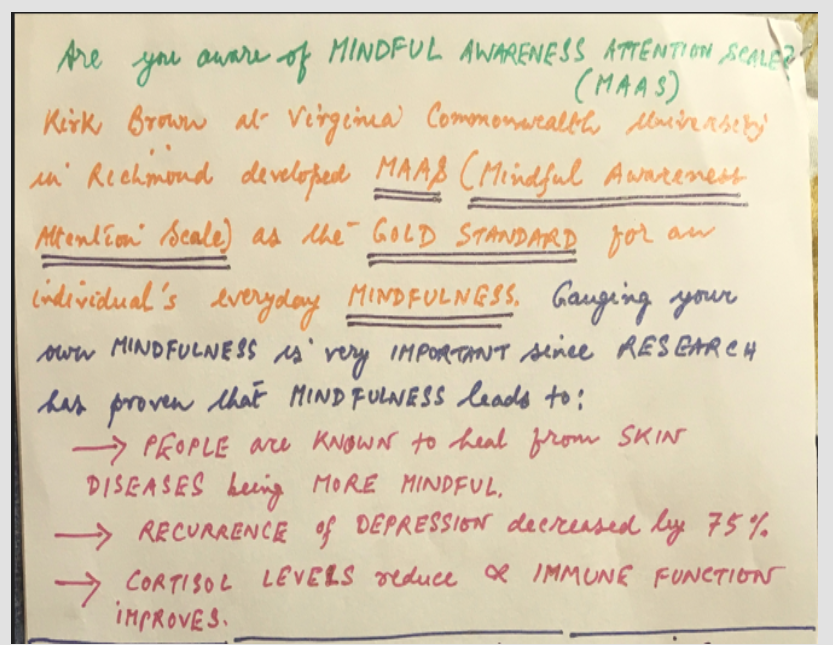 Are you aware of MINDFUL AWARENESS ATTENTION SCALE?
(MAAS)
Kirk Brown at Virginia Commonwealth University
in Richmond developed MAAS (Mindful Awareness
Attention Scale) as the GOLD STANDARD for an
individual's everyday MINDFULNESS. Gauging your
own MINDFULNESS is very IMPORTANT since RESEARCH
has proven that MINDFULNESS leads to:
→ PEOPLE are KNOWN to heal from SKIN
DISEASES being MORE MINDFUL.
→ RECURRENCE of DEPRESSION decreased by 75%.
→ CORTISOL LEVELS reduce & IMMUNE FUNCTION
IMPROVES.